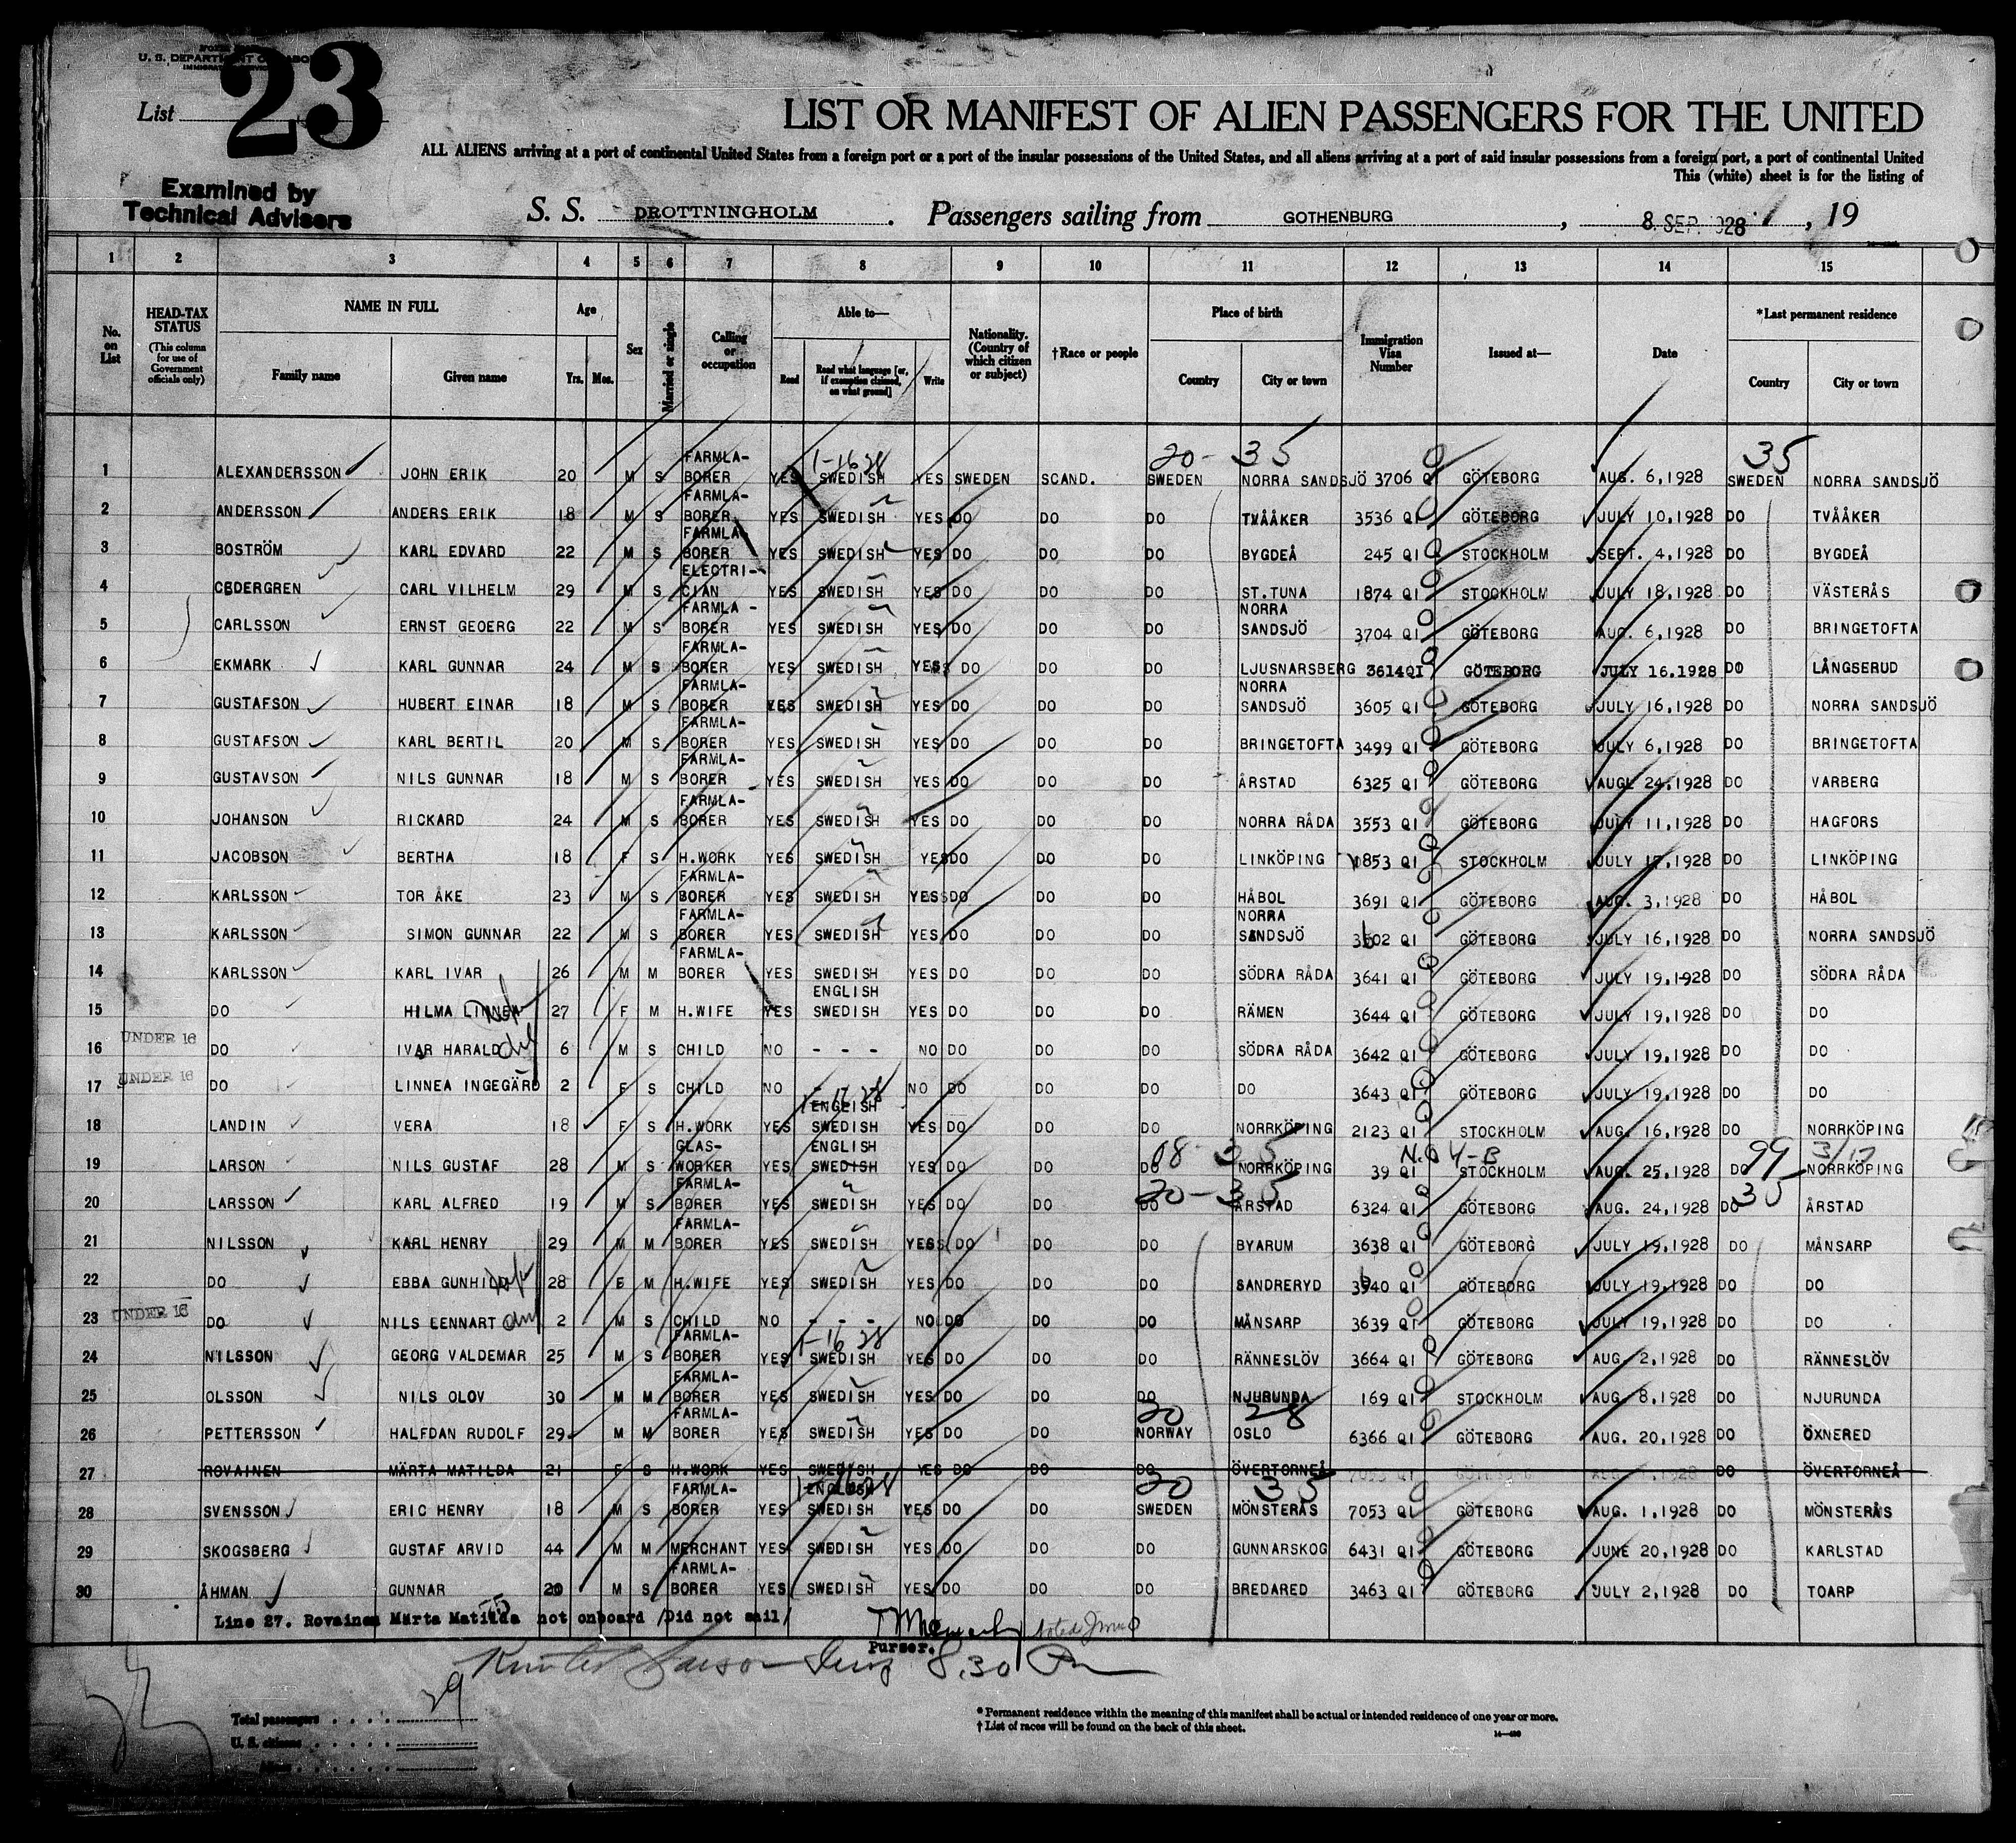 U. S. DEPARTMENT OF LABOR
List 23
LIST OR MANIFEST OF ALIEN PASSENGERS FOR THE UNITED
ALL ALIENS arriving at a port of continental United States from a foreign port or a port of the insular possessions of the United States, and all aliens arriving at a port of said insular possessions from a foreign port, a port of continental United
This (white) sheet is for the listing of
Examined by
Technical Advisers
S. S. DROTTNINGHOLM. Passengers sailing from GOTHENBURG, 8. SEP. 1928, 19
1 2 3 4 5 6 7 8 9 10 11 12 13 14 15
No. on List
HEAD-TAX STATUS (This column for use of Government officials only)
NAME IN FULL Family name Given name
Age Yrs. Mos.
Sex
Married or single
Calling or occupation
Able to— Read Read what language [or, if exemption claimed, on what ground] Write
Nationality. (Country of which citizen or subject)
†Race or people
Place of birth Country City or town
Immigration Visa Number
Issued at—
Date
*Last permanent residence Country City or town
20- 35 35
1-16 28
1 ALEXANDERSSON JOHN ERIK 20 M S FARMLA-BORER YES SWEDISH YES SWEDEN SCAND. SWEDEN NORRA SANDSJÖ 3706 Q GÖTEBORG AUG. 6,1928 SWEDEN NORRA SANDSJÖ
2 ANDERSSON ANDERS ERIK 18 M S FARMLA-BORER YES SWEDISH YES DO DO DO TVÅÅKER 3536 QI GÖTEBORG JULY 10,1928 DO TVÅÅKER
3 BOSTRÖM KARL EDVARD 22 M S FARMLA-BORER YES SWEDISH YES DO DO DO BYGDEÅ 245 QI STOCKHOLM SEPT. 4,1928 DO BYGDEÅ
4 CEDERGREN CARL VILHELM 29 M S ELECTRI-CIAN YES SWEDISH YES DO DO DO ST.TUNA 1874 QI STOCKHOLM JULY 18,1928 DO VÄSTERÅS
5 CARLSSON ERNST GEOERG 22 M S FARMLA-BORER YES SWEDISH YES DO DO DO NORRA SANDSJÖ 3704 QI GÖTEBORG AUG. 6,1928 DO BRINGETOFTA
6 EKMARK KARL GUNNAR 24 M S FARMLA-BORER YES SWEDISH YES DO DO DO LJUSNARSBERG 3614QI GÖTEBORG JULY 16.1928 DO LÅNGSERUD
7 GUSTAFSON HUBERT EINAR 18 M S FARMLA-BORER YES SWEDISH YES DO DO DO NORRA SANDSJÖ 3605 QI GÖTEBORG JULY 16,1928 DO NORRA SANDSJÖ
8 GUSTAFSON KARL BERTIL 20 M S FARMLA-BORER YES SWEDISH YES DO DO DO BRINGETOFTA 3499 QI GÖTEBORG JULY 6,1928 DO BRINGETOFTA
9 GUSTAVSON NILS GUNNAR 18 M S FARMLA-BORER YES SWEDISH YES DO DO DO ÅRSTAD 6325 QI GÖTEBORG AUG. 24,1928 DO VARBERG
10 JOHANSON RICKARD 24 M S FARMLA-BORER YES SWEDISH YES DO DO DO NORRA RÅDA 3553 QI GÖTEBORG JULY 11,1928 DO HAGFORS
11 JACOBSON BERTHA 18 F S H.WORK YES SWEDISH YES DO DO DO LINKÖPING 1853 QI STOCKHOLM JULY 17,1928 DO LINKÖPING
12 KARLSSON TOR ÅKE 23 M S FARMLA-BORER YES SWEDISH YES DO DO DO HÅBOL 3691 QI GÖTEBORG AUG. 3,1928 DO HÅBOL
13 KARLSSON SIMON GUNNAR 22 M S FARMLA-BORER YES SWEDISH YES DO DO DO NORRA SANDSJÖ 3602 QI GÖTEBORG JULY 16,1928 DO NORRA SANDSJÖ
14 KARLSSON KARL IVAR 26 M M FARMLA-BORER YES SWEDISH YES DO DO DO SÖDRA RÅDA 3641 QI GÖTEBORG JULY 19,1928 DO SÖDRA RÅDA
15 DO HILMA LINNEA 27 F M H.WIFE YES ENGLISH SWEDISH YES DO DO DO RÄMEN 3644 QI GÖTEBORG JULY 19,1928 DO DO
16 UNDER 16 DO IVAR HARALD 6 M S CHILD NO - - - NO DO DO DO SÖDRA RÅDA 3642 QI GÖTEBORG JULY 19,1928 DO DO
17 UNDER 16 DO LINNEA INGEGÄRD 2 F S CHILD NO - - NO DO DO DO DO 3643 QI GÖTEBORG JULY 19,1928 DO DO
1-16 28
18 LANDIN VERA 18 F S H.WORK YES ENGLISH SWEDISH YES DO DO DO NORRKÖPING 2123 QI STOCKHOLM AUG. 16,1928 DO NORRKÖPING
08- 35 N.Q 4-B 99 3/17
19 LARSON NILS GUSTAF 28 M S GLAS-WORKER YES ENGLISH SWEDISH YES DO DO DO NORRKÖPING 39 QI STOCKHOLM AUG. 25,1928 DO NORRKÖPING
20-35 35
20 LARSSON KARL ALFRED 19 M S FARMLA-BORER YES SWEDISH YES DO DO DO ÅRSTAD 6324 QI GÖTEBORG AUG. 24,1928 DO ÅRSTAD
21 NILSSON KARL HENRY 29 M M FARMLA-BORER YES SWEDISH YES DO DO DO BYARUM 3638 QI GÖTEBORG JULY 19,1928 DO MÅNSARP
22 DO EBBA GUNHILD 28 F M H.WIFE YES SWEDISH YES DO DO DO SANDRERYD 3640 QI GÖTEBORG JULY 19,1928 DO DO
23 UNDER 16 DO NILS LENNART 2 M S CHILD NO - - - NO DO DO DO MÅNSARP 3639 QI GÖTEBORG JULY 19,1928 DO DO
1-16 28
24 NILSSON GEORG VALDEMAR 25 M S FARMLA-BORER YES SWEDISH YES DO DO DO RÄNNESLÖV 3664 QI GÖTEBORG AUG. 2,1928 DO RÄNNESLÖV
25 OLSSON NILS OLOV 30 M M FARMLA-BORER YES SWEDISH YES DO DO DO NJURUNDA 169 QI STOCKHOLM AUG. 8,1928 DO NJURUNDA
20 28
26 PETTERSSON HALFDAN RUDOLF 29 M M FARMLA-BORER YES SWEDISH YES DO DO NORWAY OSLO 6366 QI GÖTEBORG AUG. 20,1928 DO ÖXNERED
27 ROVAINEN MÄRTA MATILDA 21 F S H.WORK YES SWEDISH YES DO DO DO ÖVERTORNEÅ DO ÖVERTORNEÅ
20 35
28 SVENSSON ERIC HENRY 18 M S FARMLA-BORER YES ENGLISH SWEDISH YES DO DO SWEDEN MÖNSTERÅS 7053 QI GÖTEBORG AUG. 1,1928 DO MÖNSTERÅS
29 SKOGSBERG GUSTAF ARVID 44 M M MERCHANT YES SWEDISH YES DO DO DO GUNNARSKOG 6431 QI GÖTEBORG JUNE 20,1928 DO KARLSTAD
30 ÅHMAN GUNNAR 20 M S FARMLA-BORER YES SWEDISH YES DO DO DO BREDARED 3463 QI GÖTEBORG JULY 2,1928 DO TOARP
Line 27. Rovainen Märta Matilda not onboard /Did not sail/
Purser.
8.30 Pm
Total passengers 29
U. S. citizens
Aliens
* Permanent residence within the meaning of this manifest shall be actual or intended residence of one year or more.
† List of races will be found on the back of this sheet.